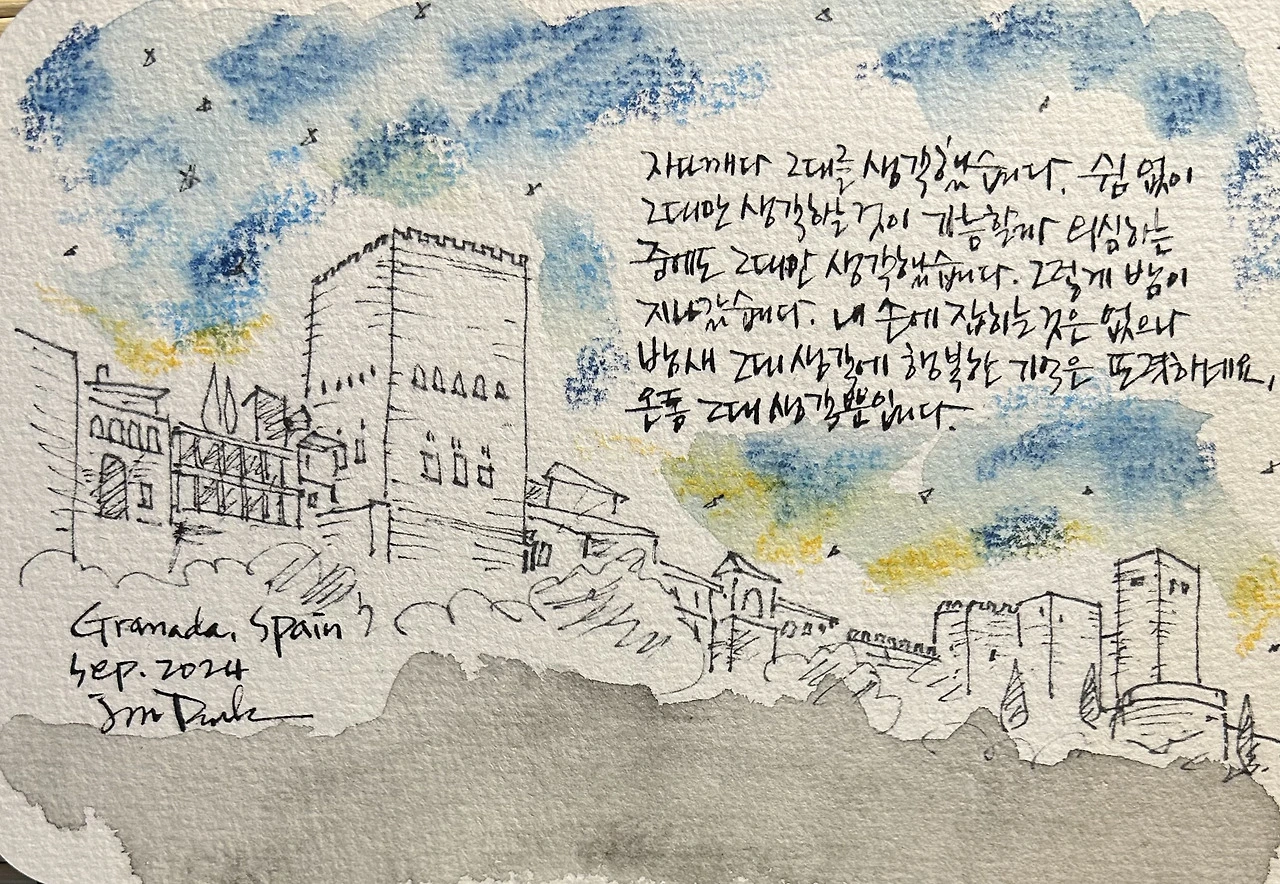 자다깨다 그대를 생각했습니다. 쉼 없이
그대만 생각하는 것이 가능할까 의심하는
중에도 그대만 생각했습니다. 그렇게 밤이
지나갔습니다. 내 손에 잡히는 것은 없으나
밤새 그대 생각에 행복한 기억은 또렷하네요,
온통 그대 생각뿐입니다.
Granada, Spain
Sep. 2024